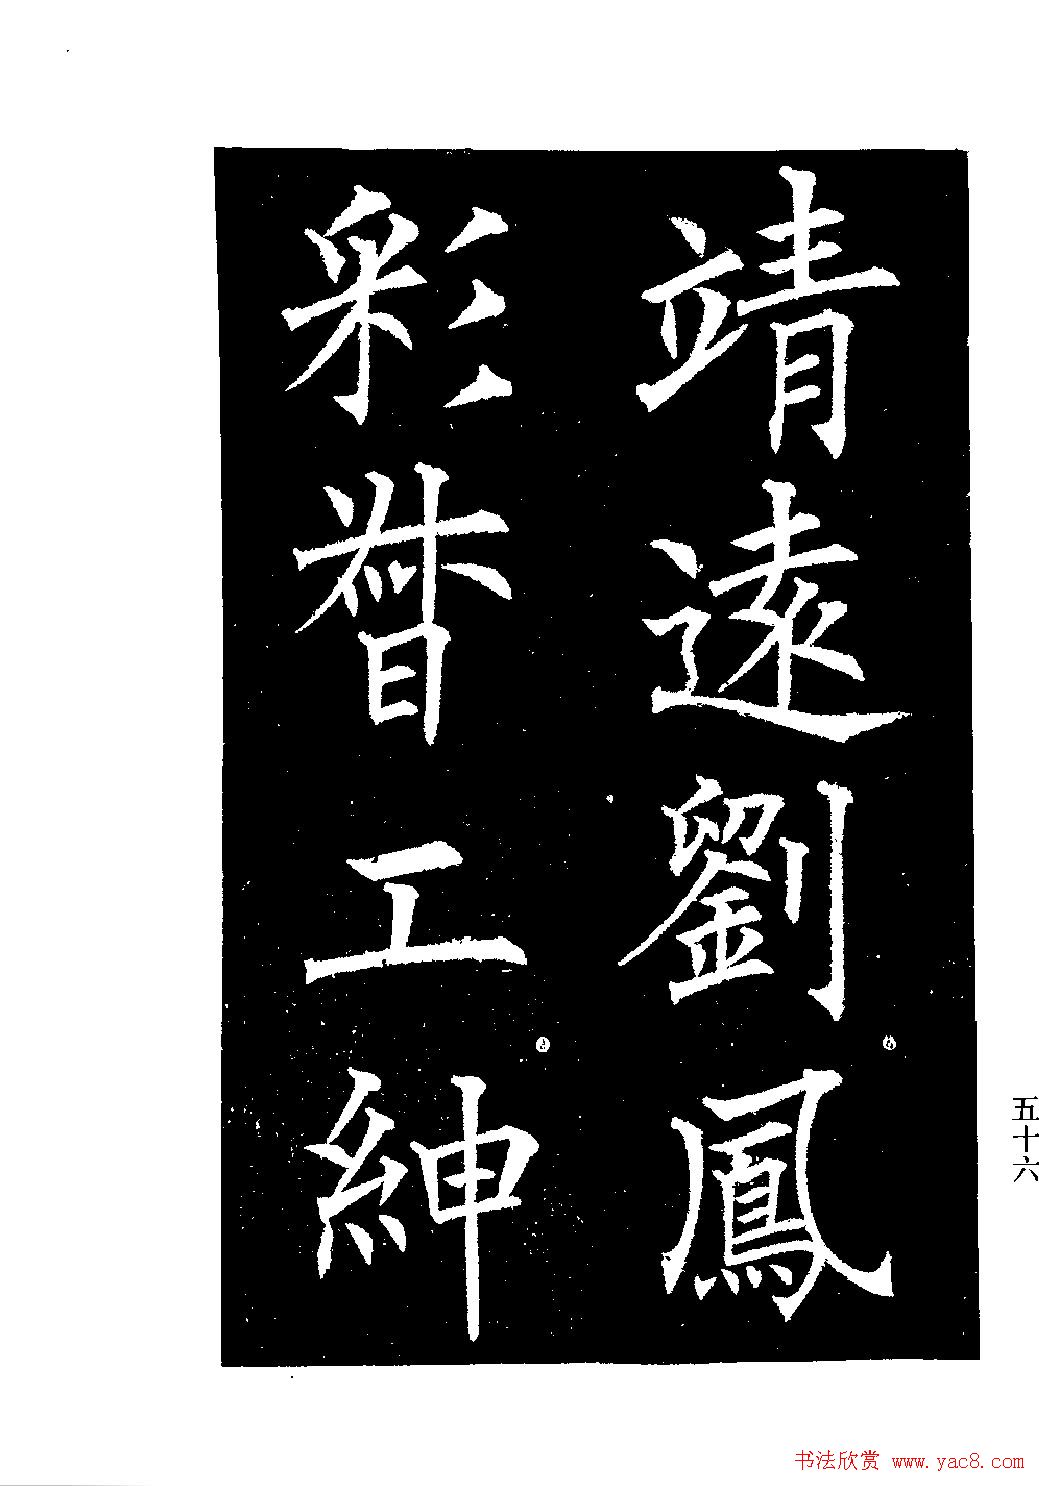 靖遠劉鳳
彩督工紳
五十六
书法欣赏 www.yac8.com